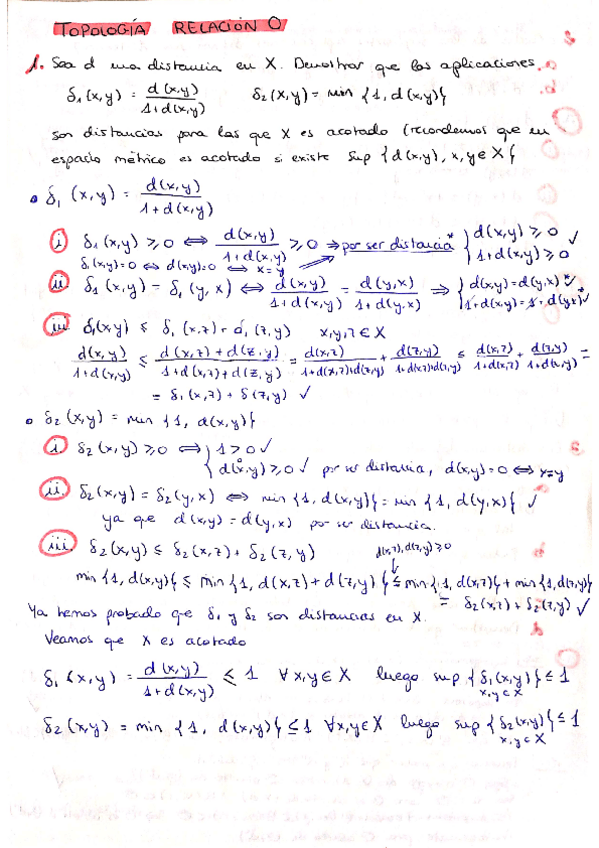 TOPOLOGÍA RELACIÓN 0
1. Sea d una distancia en X. Demostrar que las aplicaciones
δ₁(x,y) = d(x,y)/1+d(x,y) δ₂(x,y) = min {1, d(x,y)}
son distancias para las que X es acotado (recordemos que un
espacio métrico es acotado si existe sup {d(x,y), x,y∈X}
• δ₁(x,y) = d(x,y)/1+d(x,y)
i δ₁(x,y) ≥ 0 ⇔ d(x,y)/1+d(x,y) ≥ 0 ⇒ por ser distancia* { d(x,y) ≥ 0 1+d(x,y) ≥ 0 ✓
δ₁(x,y)=0 ⇔ d(x,y)=0 ⇔ x=y
ii δ₁(x,y) = δ₁(y,x) ⇔ d(x,y)/1+d(x,y) = d(y,x)/1+d(y,x) ⇒ { d(x,y)=d(y,x)* ✓ 1+d(x,y)=1+d(y,x) ✓
iii δ₁(x,y) ≤ δ₁(x,z) + δ₁(z,y) x,y,z ∈ X
d(x,y)/1+d(x,y) ≤ d(x,z)+d(z,y)/1+d(x,z)+d(z,y) = d(x,z)/1+d(x,z)+d(z,y) + d(z,y)/1+d(x,z)+d(z,y) ≤ d(x,z)/1+d(x,z) + d(z,y)/1+d(z,y) =
= δ₁(x,z) + δ(z,y) ✓
• δ₂(x,y) = min {1, d(x,y)}
i. δ₂(x,y) ≥ 0 ⇔ { 1 > 0 ✓
d(x,y) ≥ 0 ✓ por ser distancia, d(x,y)=0 ⇔ x=y
ii. δ₂(x,y) = δ₂(y,x) ⇔ min {1, d(x,y)} = min {1, d(y,x)} ✓
ya que d(x,y) = d(y,x) por ser distancia.
iii. δ₂(x,y) ≤ δ₂(x,z) + δ₂(z,y) d(x,z), d(z,y) ≥ 0
min {1, d(x,y)} ≤ min {1, d(x,z) + d(z,y)} ≤ min {1, d(x,z)} + min {1, d(z,y)}
= δ₂(x,z) + δ₂(z,y) ✓
Ya hemos probado que δ₁ y δ₂ son distancias en X.
Veamos que X es acotado
δ₁(x,y) = d(x,y)/1+d(x,y) ≤ 1 ∀x,y∈X luego sup {δ₁(x,y)} ≤ 1
x,y∈X
δ₂(x,y) = min {1, d(x,y)} ≤ 1 ∀x,y∈X luego sup {δ₂(x,y)} ≤ 1
x,y∈X